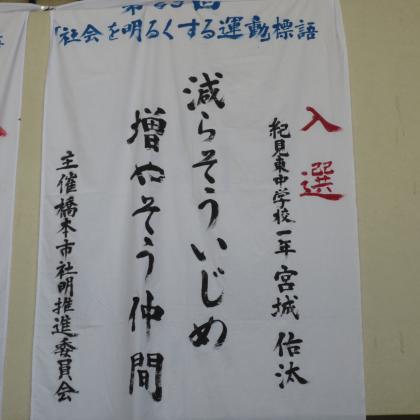 「社会を明るくする運動標語
入選
紀見東中学校一年 宮城 佑汰
減らそういじめ
増やそう仲間
主催橋本市社明推進委員会